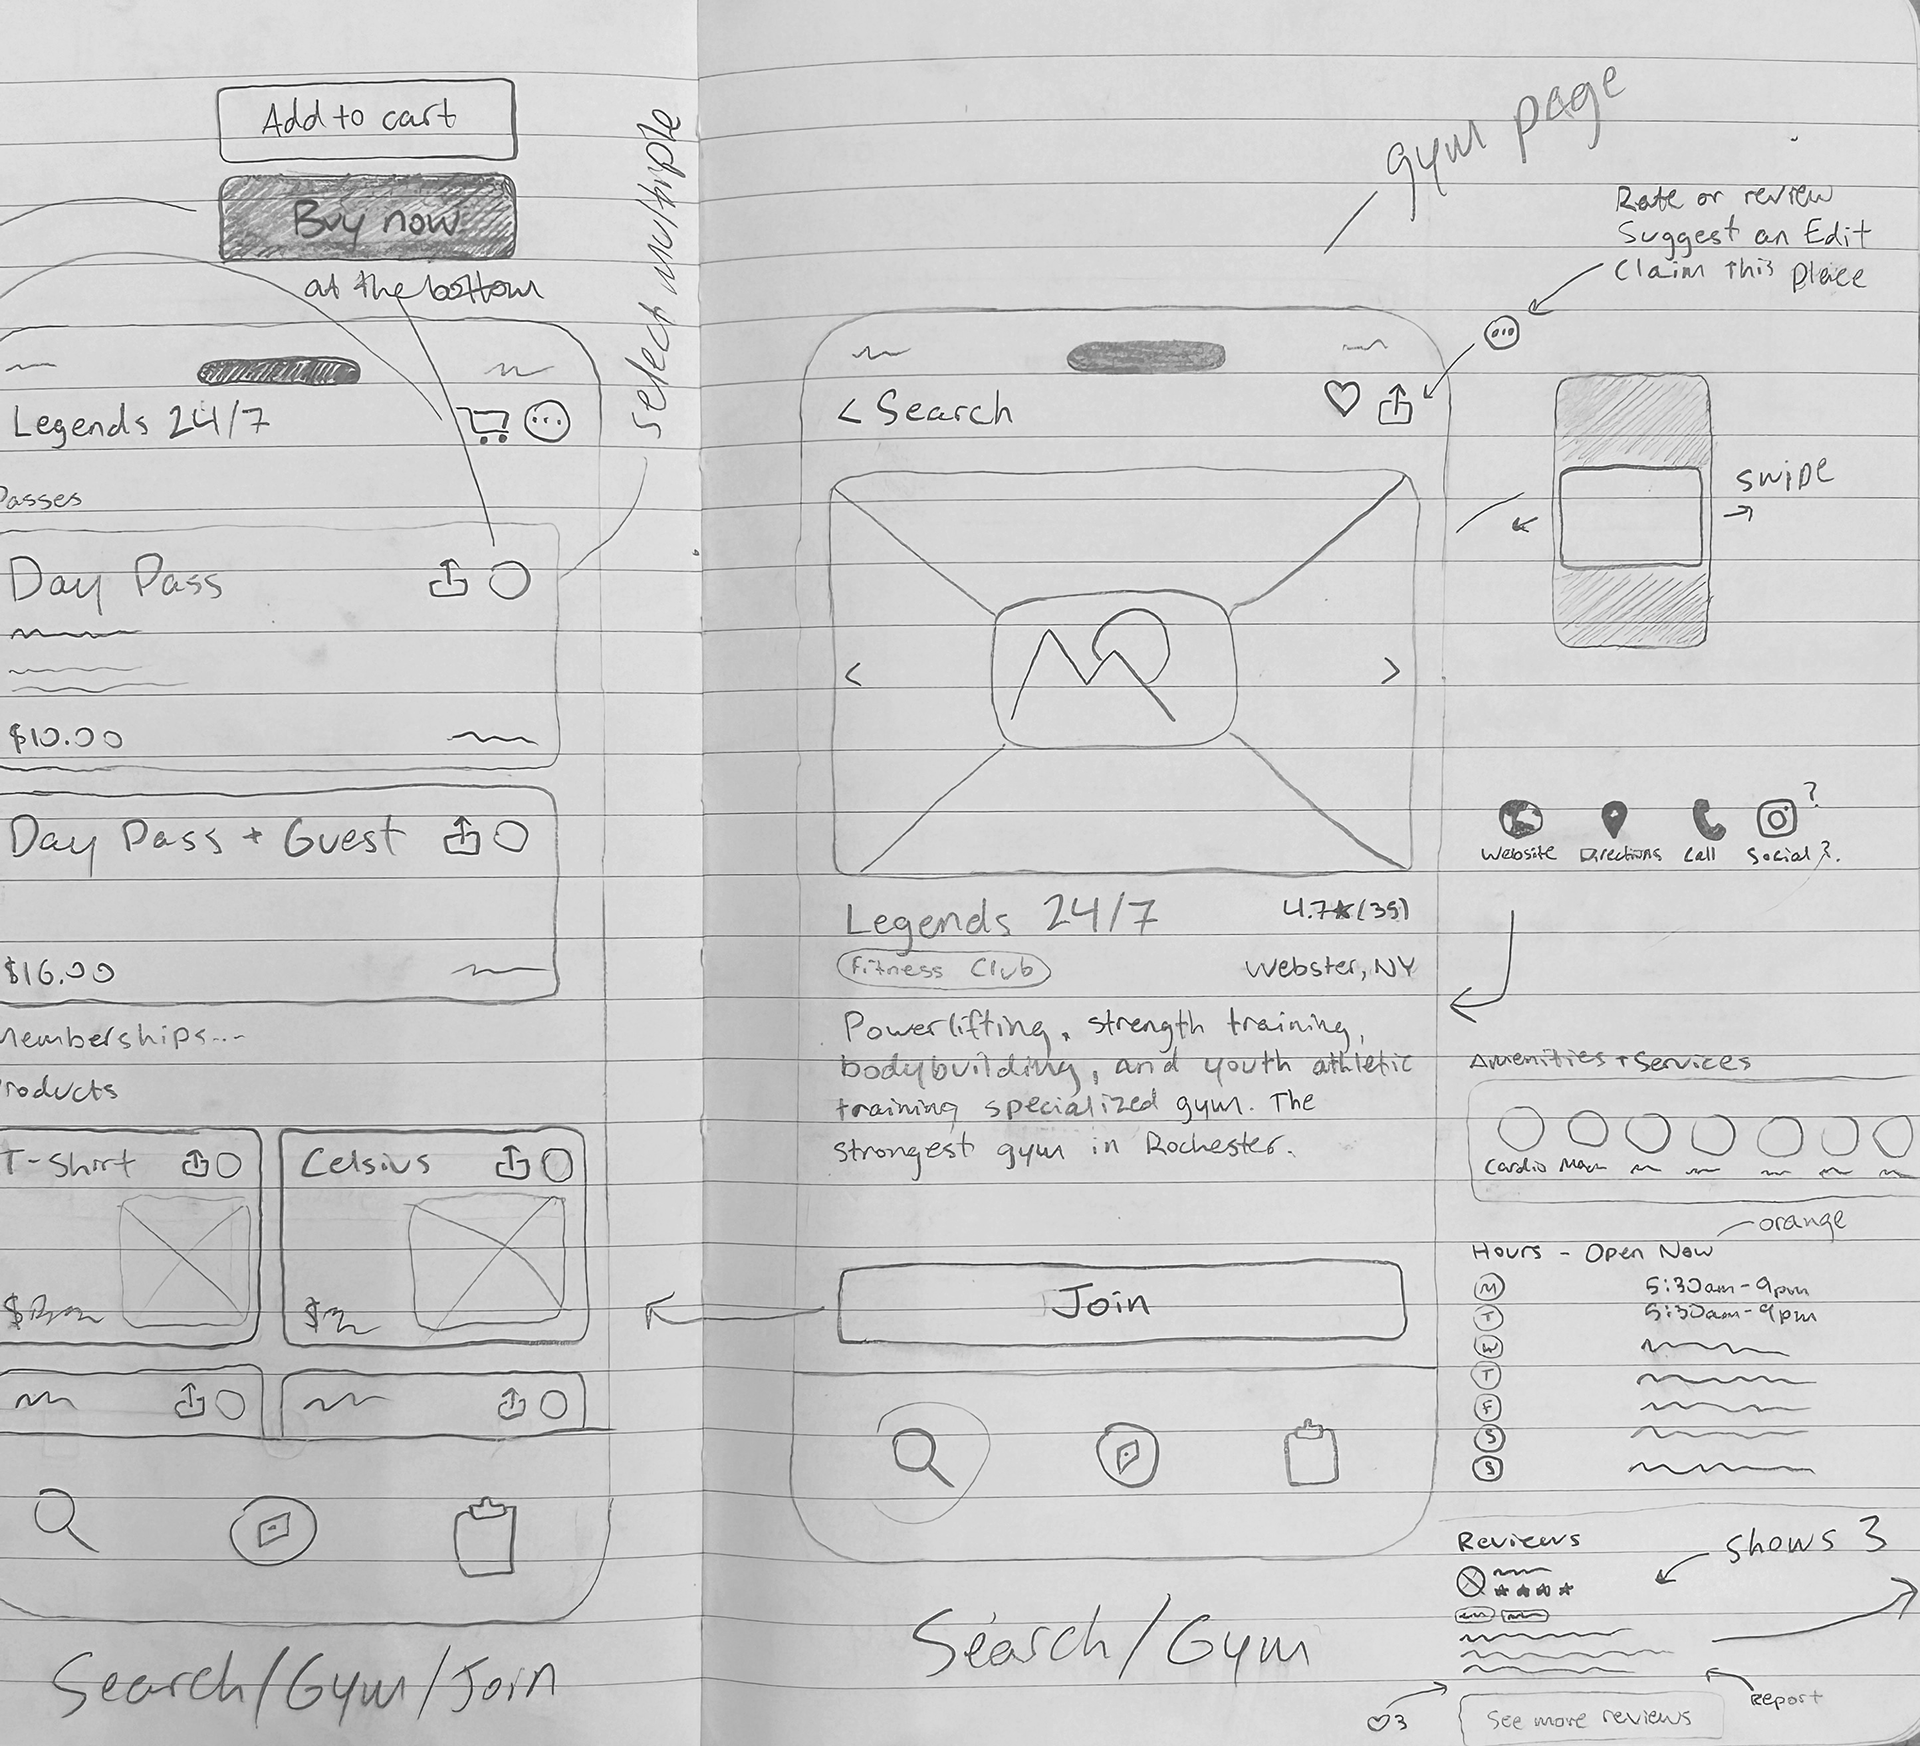 Add to cart
Buy now
at the bottom
select multiple
Legends 24/7
Passes
Day Pass
$10.00
Day Pass + Guest
$16.00
Memberships...
Products
T-Shirt
Celsius
Search/Gym/Join
gym page
Rate or review
Suggest an Edit
Claim This Place
< Search
swipe
Website
Directions
Call
Social?
?
Legends 24/7
4.7★(39)
Fitness Club
Webster, NY
Powerlifting, strength training,
bodybuilding, and youth athletic
training specialized gym. The
strongest gym in Rochester.
Join
Search/Gym
Amenities + Services
Cardio
orange
Hours - Open Now
M 5:30am-9pm
T 5:30am-9pm
W
T
F
S
S
Reviews
shows 3
♡3
Report
See more reviews